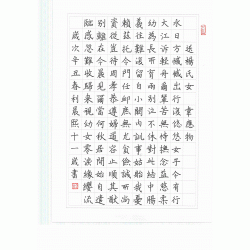 送楊氏女　韋應物
永日方慼慼出行復悠悠女子今有行
大江泝輕舟爾輩苦無恃撫念益慈柔
幼為長所育兩別泣不休對此結中腸
義往難復留自小闕內訓事姑貽我憂
賴茲托令門仁卹庶無尤貧儉誠所尚
資從豈待周孝恭遵婦道容止順其猷
別離在今晨見爾當何秋居閒始自遣
臨感忽難收歸來視幼女零淚緣纓流
歲次辛丑春利晨熙十一歲書